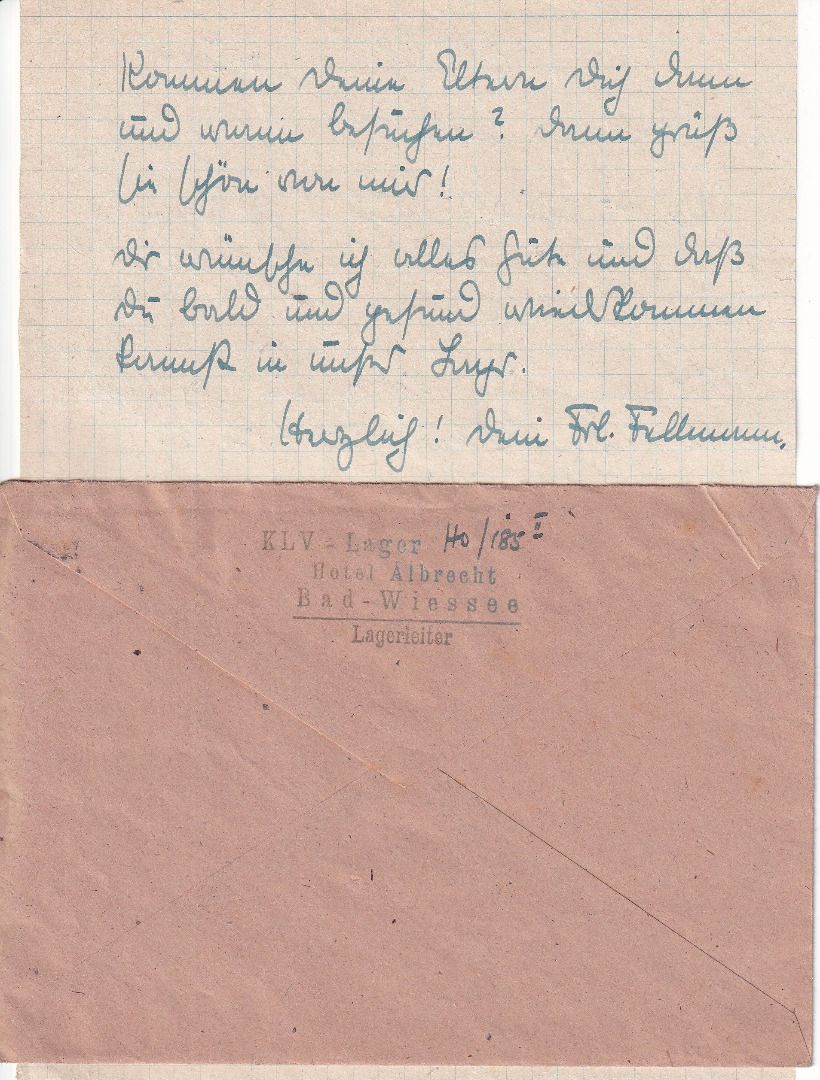 Kommen deine Eltern dich denn
und wann besuchen? Dann grüß
sie schön von mir!
Dir wünsche ich alles Gute und daß
du bald und gesund wiederkommen
kannst in unser Lager.
Herzlich! Dein Frl. Fellmann.
KLV-Lager Ho/185 II
Hotel Albrecht
Bad-Wiessee
Lagerleiter